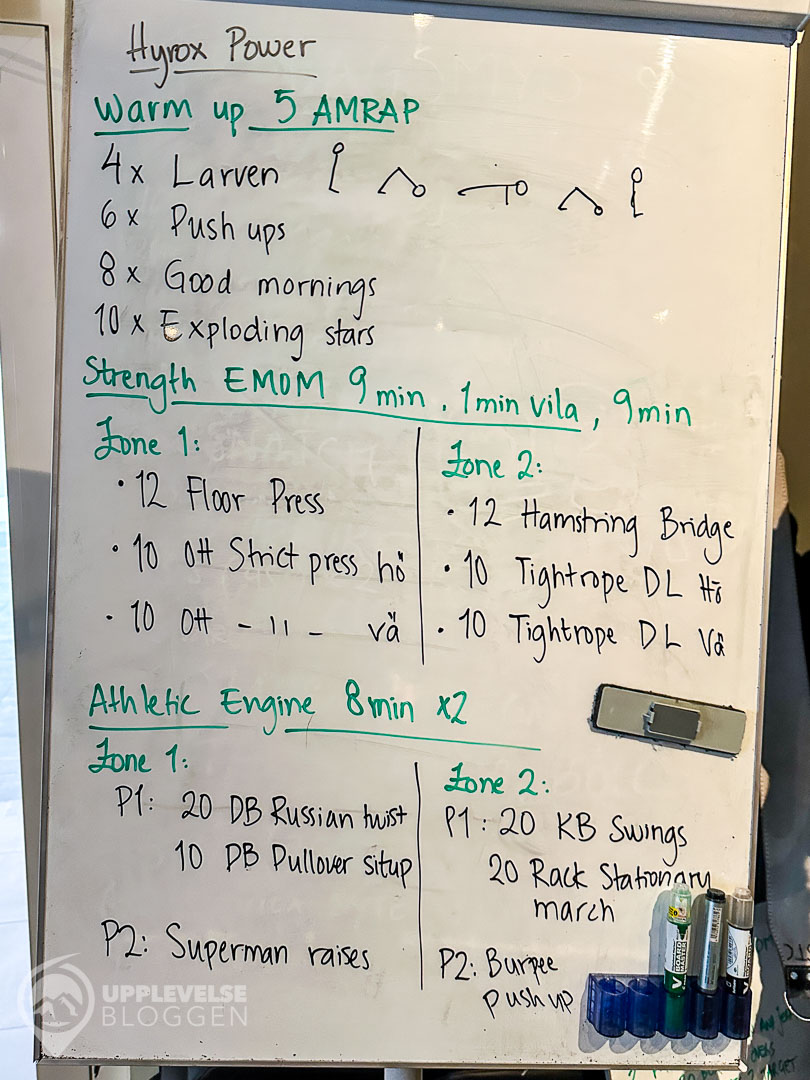 Hyrox Power
Warm up 5 AMRAP
4x Larven
6x Push ups
8x Good mornings
10x Exploding stars
Strength EMOM 9min. 1min vila, 9min
Zone 1:
• 12 Floor Press
• 10 OH Strict press hö
• 10 OH - 11 - vä
Zone 2:
• 12 Hamstring Bridge
• 10 Tightrope DL Hö
• 10 Tightrope DL Vä
Athletic Engine 8min x2
Zone 1:
P1: 20 DB Russian twist
10 DB Pullover situp
P2: Superman raises
Zone 2:
P1: 20 KB Swings
20 Rack Stationary
march
P2: Burpee
push up
UPPLEVELSE
BLOGGEN
V BOARD
MASTER